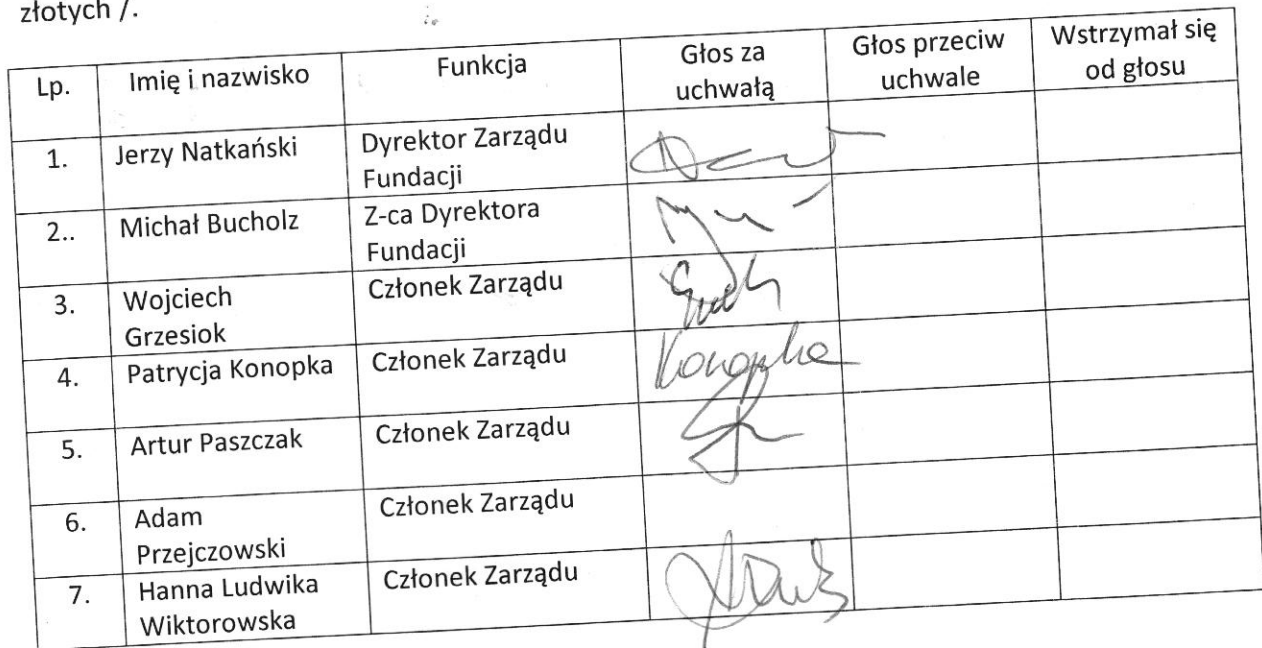 złotych /.
Lp. Imię i nazwisko Funkcja Głos za uchwałą Głos przeciw uchwale Wstrzymał się od głosu
1. Jerzy Natkański Dyrektor Zarządu Fundacji
2.. Michał Bucholz Z-ca Dyrektora Fundacji
3. Wojciech Grzesiok Członek Zarządu
4. Patrycja Konopka Członek Zarządu Konopka
5. Artur Paszczak Członek Zarządu
6. Adam Przejczowski Członek Zarządu
7. Hanna Ludwika Wiktorowska Członek Zarządu